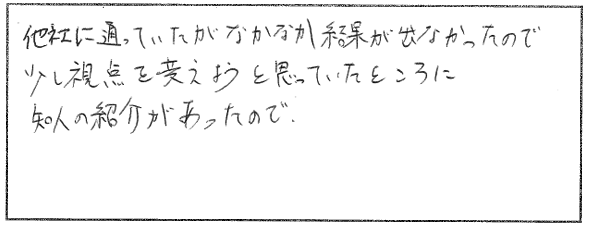 他社に通っていたがなかなか結果が出なかったので
少し視点を変えようと思っていたところに
知人の紹介があったので.